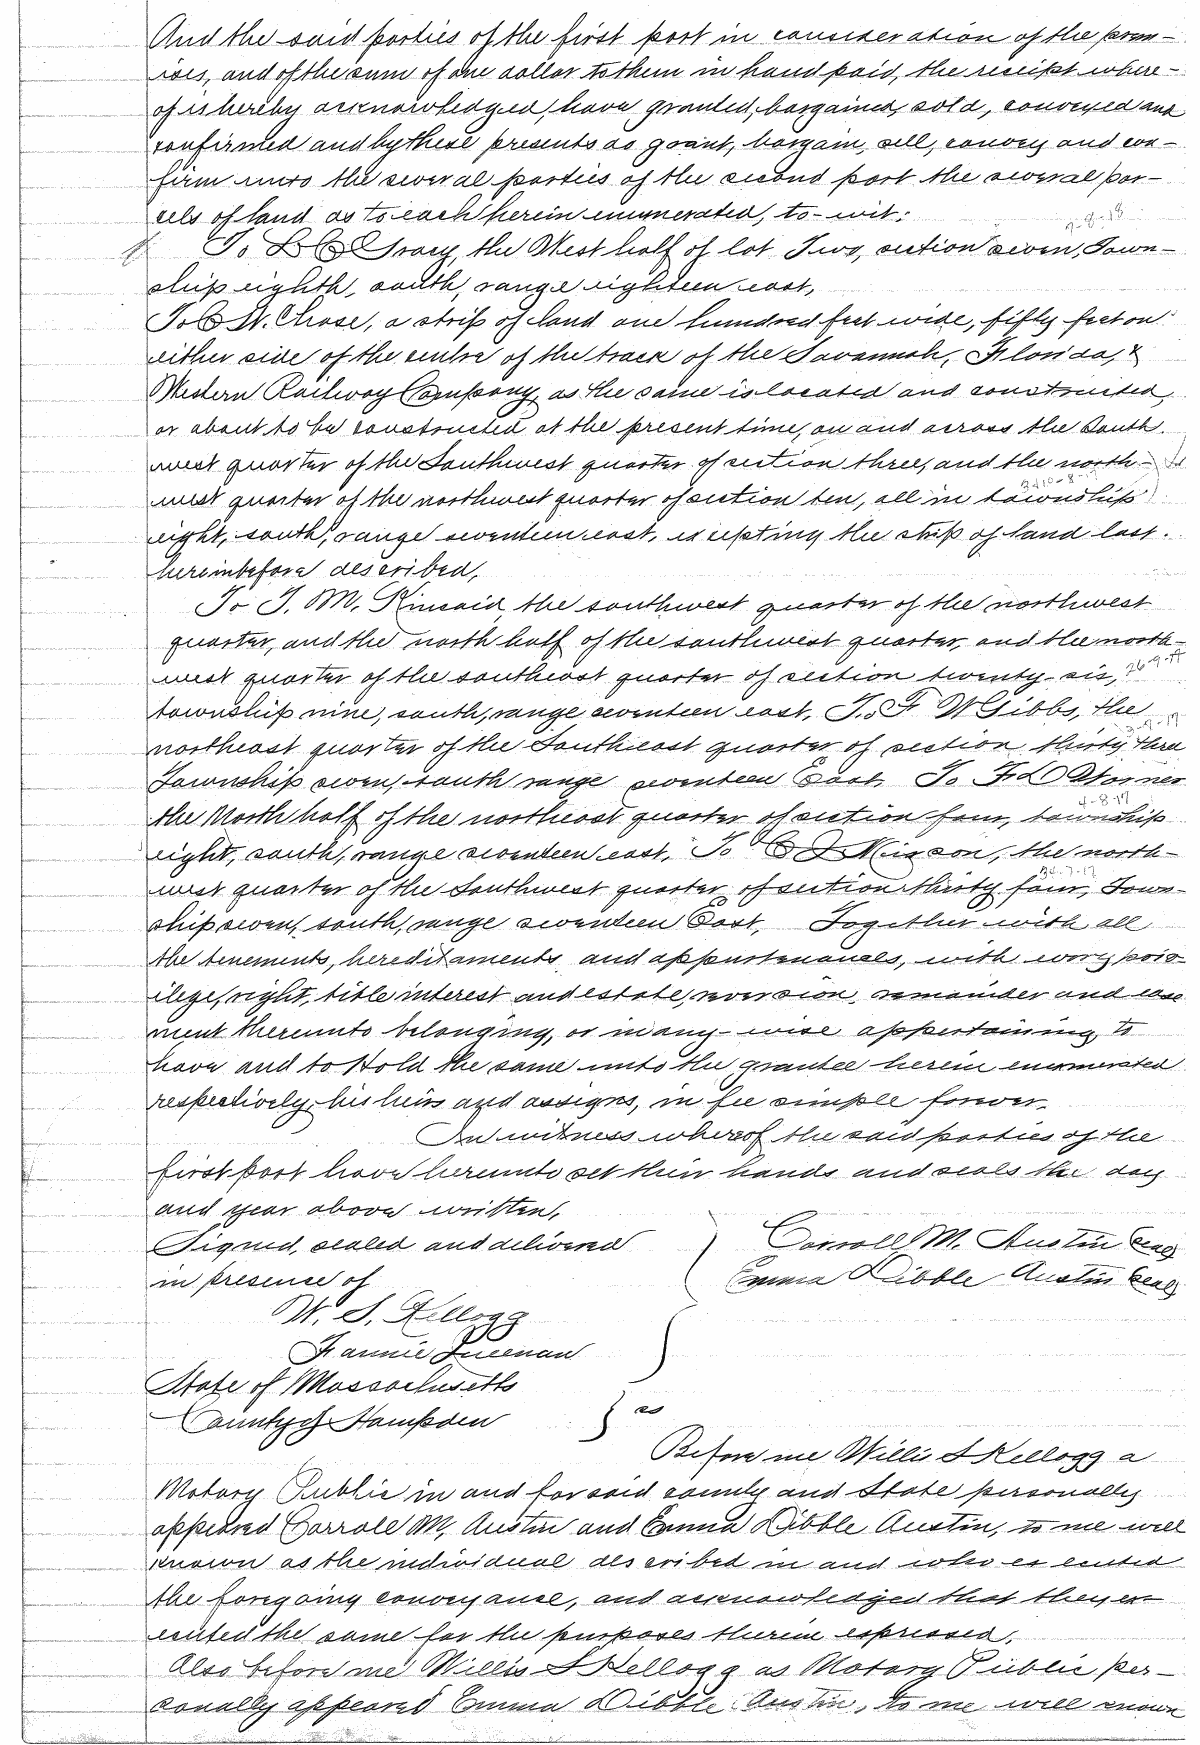 And the said parties of the first part in consideration of the prem-
ises, and of the sum of one dollar to them in hand paid, the receipt where-
of is hereby acknowledged, have granted, bargained, sold, conveyed and
confirmed and by these presents do grant, bargain, sell, convey and con-
firm unto the several parties of the second part the several par-
cels of land as to each herein enumerated, to-wit:
7-8-18
To L C Gracy, the West half of lot Two, section seven, Town-
ship eighth, south, range eighteen east,
To C W. Chase, a strip of land one hundred feet wide, fifty feet on
either side of the centre of the track of the Savannah, Florida, &
Western Railway Company, as the same is located and constructed,
or about to be constructed at the present time, on and across the South.
west quarter of the Southwest quarter of section three, and the north-
west quarter of the northwest quarter of section ten, all in township
eight, south, range seventeen east, excepting the strip of land last.
hereinbefore described,
To J. M. Kincaid, the southwest quarter of the northwest
quarter, and the north half of the southwest quarter, and the north-
west quarter of the southeast quarter of section twenty-six, 26-9-17
township nine, south, range seventeen east, To F W Gibbs, the
northeast quarter of the Southeast quarter of section thirty three
Township seven, south range seventeen East, To F L
4-8-17
the North half of the northeast quarter of section four, township
eight, south, range seventeen east, To C the north-
34-7-17
west quarter of the Southwest quarter of section thirty four, Town-
ship seven, south, range seventeen East, Together with all
the tenements, hereditaments and appurtenances, with every priv-
ilege, right, title interest and estate, reversion, remainder and ease
ment thereunto belonging, or in any-wise appertaining, to
have and to Hold the same unto the grantee herein enumerated
respectively, his heirs and assigns, in fee simple forever.
In witness whereof the said parties of the
first part have hereunto set their hands and seals the day
and year above written.
Signed, sealed and delivered
in presence of
Carroll M. Austin Seal
Emma Dibble Austin Seal
W. S. Kellogg
Fannie
State of Massachusetts
County of Hampden ss
Before me Willis S Kellogg a
Notary Public in and for said county and State personally
appeared Carroll M. Austin and Emma Dibble Austin, to me well
known as the individual described in and who executed
the foregoing conveyance, and acknowledged that they ex-
ecuted the same for the purposes therein expressed.
Also before me Willis S Kellogg as Notary Public per-
sonally appeared Emma Dibble Austin, to me well known